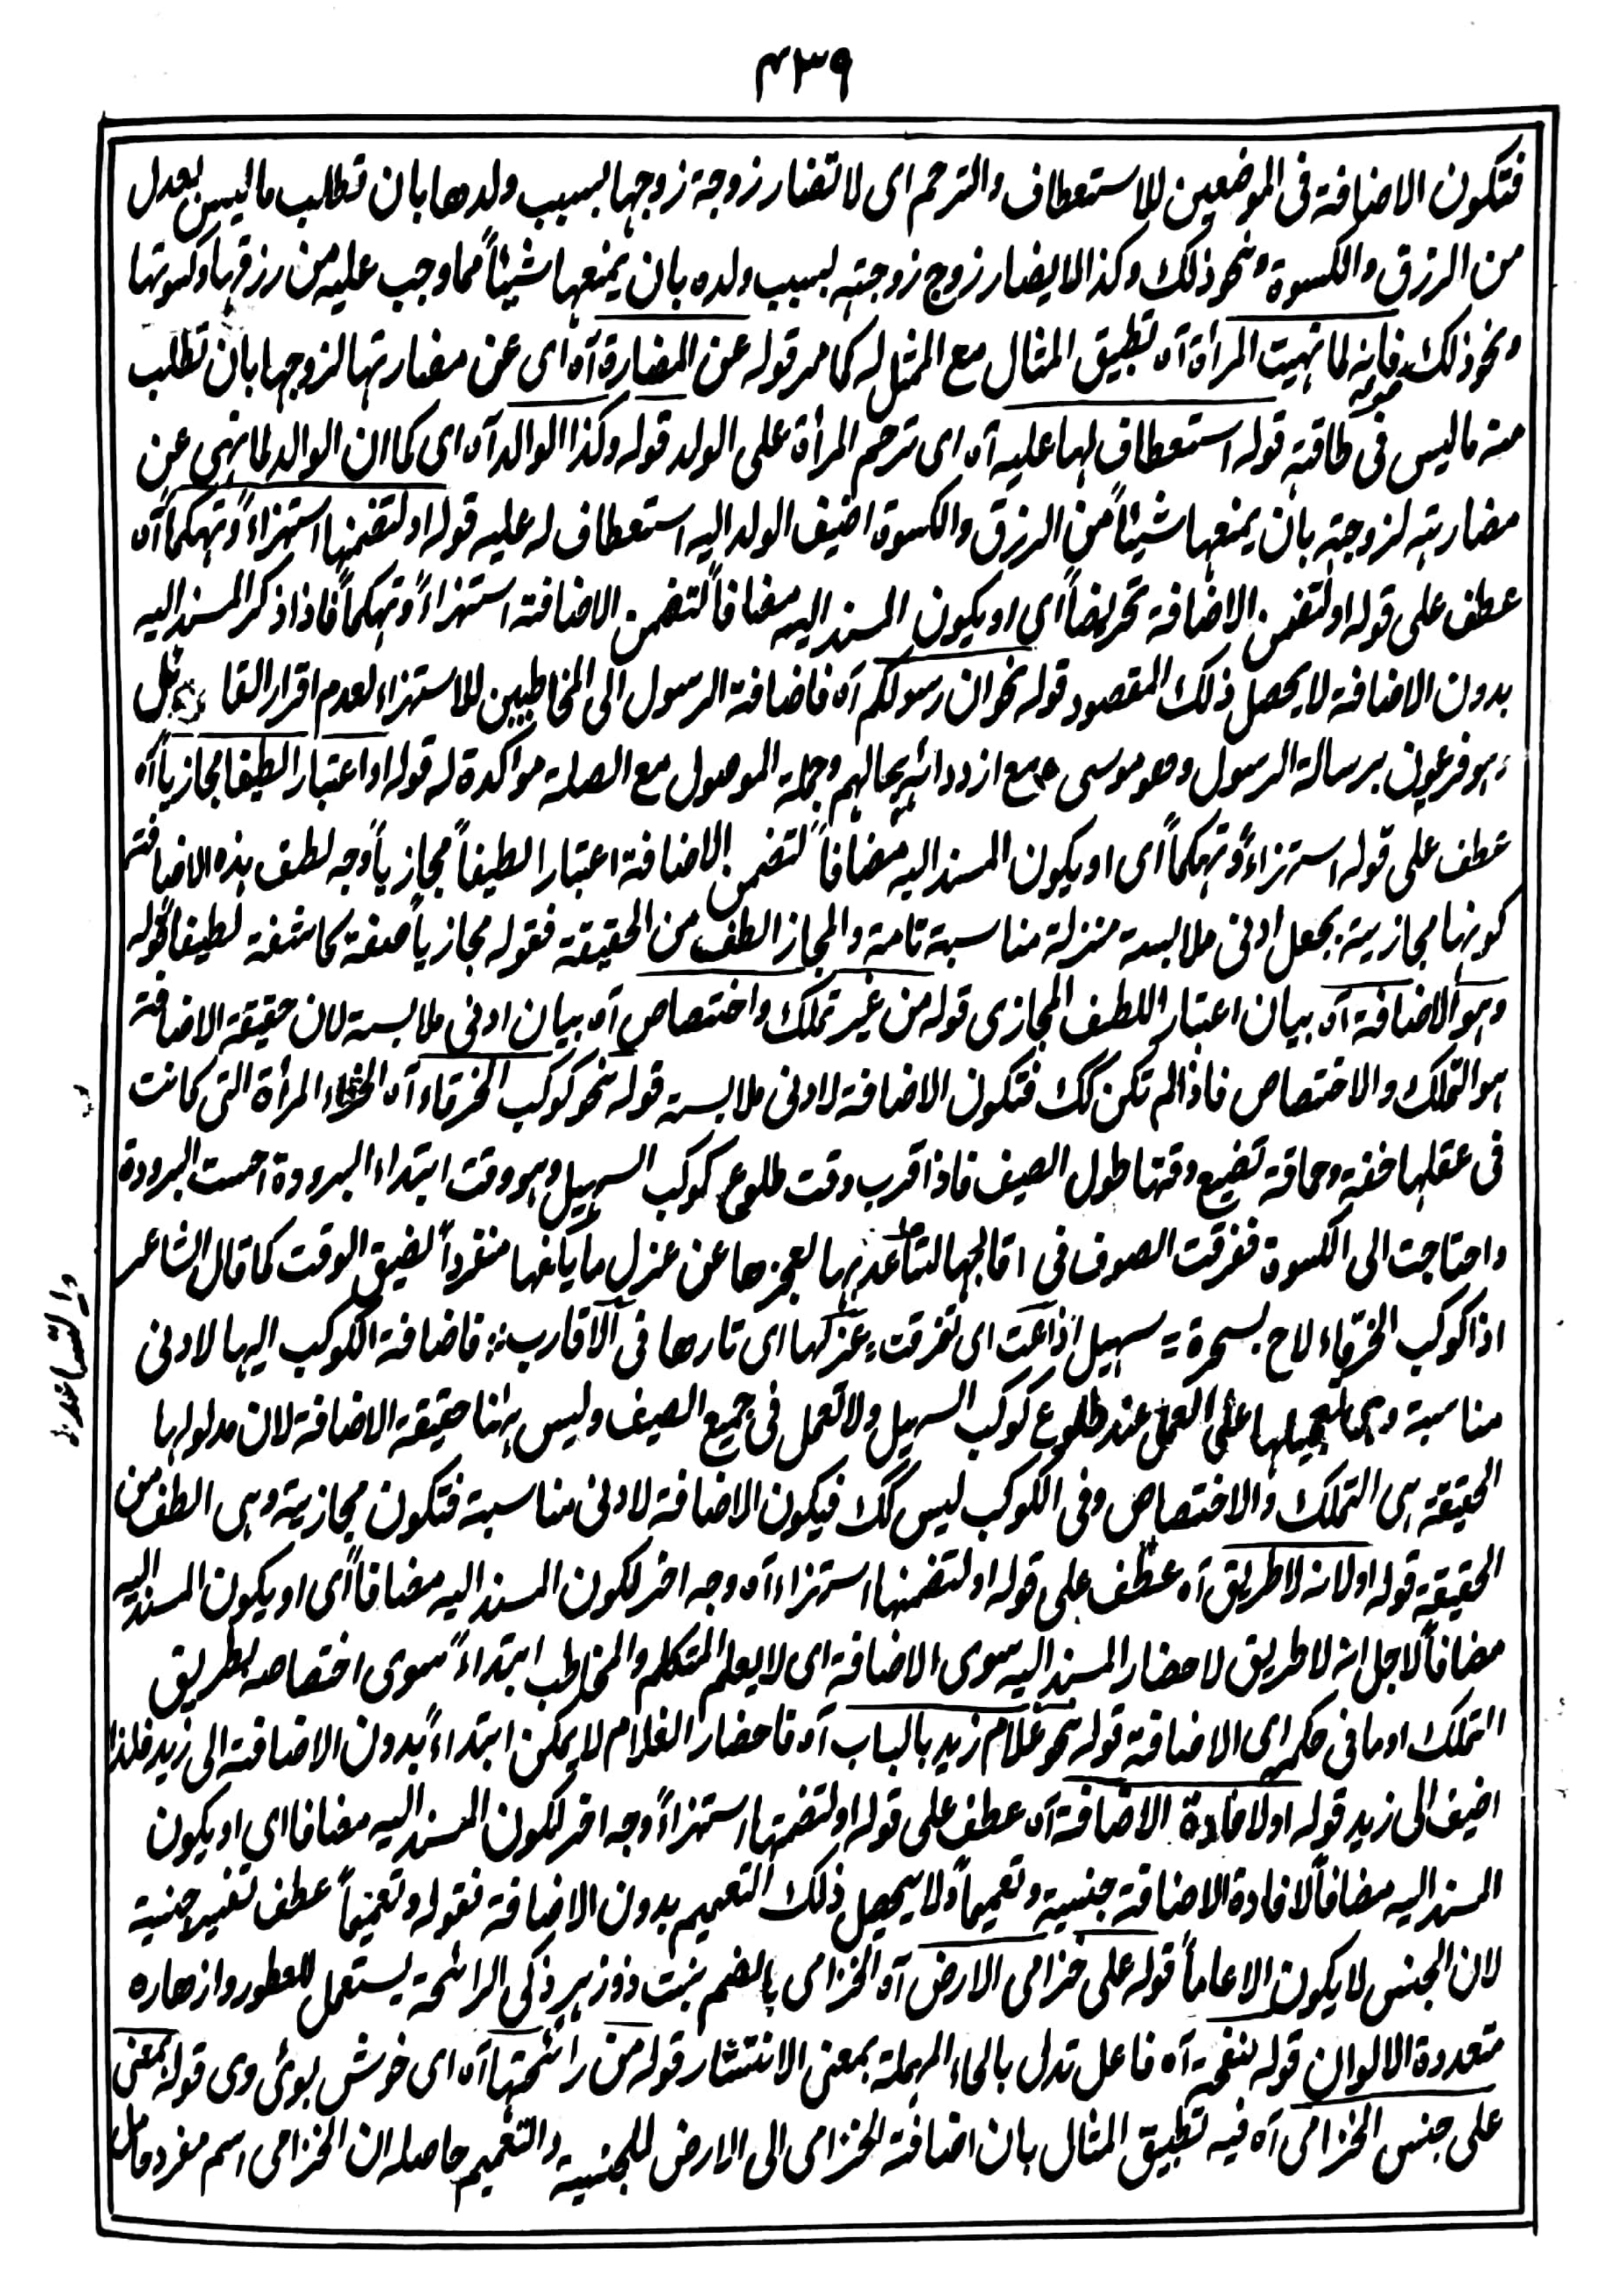 ٤٣٩
فتكون الاضافة فى الموضعين للاستعطاف والترحم اى لا تضار زوجة زوجها بسبب ولدها بان تطلب ما ليس بعدل
من الرزق والكسوة ونحو ذلك وكذا لا يضار زوج زوجته بسبب ولده بان يمنعها شيئاً مما وجب عليه من رزقها وكسوتها
ونحو ذلك قوله فانه لما نهيت المرأة آه تطبيق المثال مع الممثل له كما مر قوله عن المضارة آه اى عن مضارتها لزوجها بان تطلب
منه ما ليس فى طاقته قوله استعطاف لها عليه آه اى ترحم المرأة على الولد قوله وكذا الوالد آه اى كما ان الوالد لما نهى عن
مضارته لزوجته بان يمنعها شيئاً من الرزق والكسوة اضيف الولد اليه استعطاف له عليه قوله او لتضمنها استهزاءً وتهكماً آه
عطف على قوله او لتضمن الاضافة تحريضاً اى او يكون المسند اليه مضافاً لتضمن الاضافة استهزاءً وتهكماً فاذا ذكر المسند اليه
بدون الاضافة لا يحصل ذلك المقصود قوله نحو ان رسولكم آه فاضافة الرسول الى المخاطبين للاستهزاء لعدم اقرار القائل
وهو فرعون برسالة الرسول وهو موسى ع مع ازدرائه بحالهم وجملة الموصول مع الصلة مواكدة له قوله او اعتبارا لطيفا مجازياً آه
عطف على قوله استهزاءً وتهكماً اى او يكون المسند اليه مضافاً لتضمن الاضافة اعتبارا لطيفاً مجازياً وجه لطف هذه الاضافة
كونها مجازية بجعل ادنى ملابسة منزلة مناسبة تامة والمجاز الطف من الحقيقة فقوله مجازياً صفة كاشفة لطيفاً قوله
وهو الاضافة آه بيان اعتبار اللطيف المجازى قوله من غير تملك واختصاص آه بيان ادنى ملابسة لان حقيقة الاضافة
هو التملك والاختصاص فاذا لم تكن كك فتكون الاضافة لادنى ملابسة قوله نحو كوكب الخرقاء آه الخرقاء المرأة التى كانت
فى عقلها خفة وحماقة تضيع وقتها طول الصيف فاذا قرب وقت طلوع كوكب السهيل وهو وقت ابتداء البرودة احست البرودة
واحتاجت الى الكسوة ففرقت الصوف فى اقاربها لتساعدها لعجزها عن غزل ما يكفها منفرداً لضيق الوقت كما قال الشاعر
اذا كوكب الخرقاء لاح بسحرة = سهيل اذاعت اى تفرقت غزلها اى تارها فى الاقارب فاضافة الكوكب اليها لادنى
مناسبة وهى تعجيلها على العمل عند طلوع كوكب السهيل ولا تعمل فى جميع الصيف وليس هنا حقيقة الاضافة لان مدلولها
الحقيقة هى التملك والاختصاص وفى الكوكب ليس كك فيكون الاضافة لادنى مناسبة فتكون مجازية وهى الطف من
الحقيقة قوله او لانه لا طريق آه عطف على قوله او لتضمنها استهزاء آه وجه اخر لكون المسند اليه مضافاً اى او يكون المسند اليه
مضافاً لاجل انه لا طريق لاحضار المسند اليه سوى الاضافة اى لا يعلم المتكلم والمخاطب ابتداءً سوى اختصاصه بطريق
التملك او ما فى حكمه اى الاضافة قوله نحو غلام زيد بالباب آه فاحضار الغلام لا يمكن ابتداءً بدون الاضافة الى زيد فلذا
اضيف الى زيد قوله او لافادة الاضافة آه عطف على قوله او لتضمنها استهزاءً وجه اخر لكون المسند اليه مضافا اى او يكون
المسند اليه مضافاً لافادة الاضافة جنسية وتعميماً ولا يحصل ذلك التعميم بدون الاضافة فقوله وتعميماً عطف تفسير جنسية
لان الجنس لا يكون الا عاماً قوله على خزامى الارض آه الخزامى بالضم نبت ذو زهر ذكى الرائحة يستعمل للعطور وازهاره
متعددة الالوان قوله بنفحة آه فاعل تدلى بالحاء المهملة بمعنى الانتشار قوله من رائحتها آه اى خوش بوئى وى قوله بمعنى
على جنس الخزامى آه فيه تطبيق المثال بان اضافة الخزامى الى الارض للجنسية والتعميم حاصله ان الخزامى اسم مفرد حامل